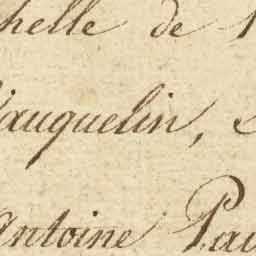 helle de
Vauquelin,
Antoine Pau